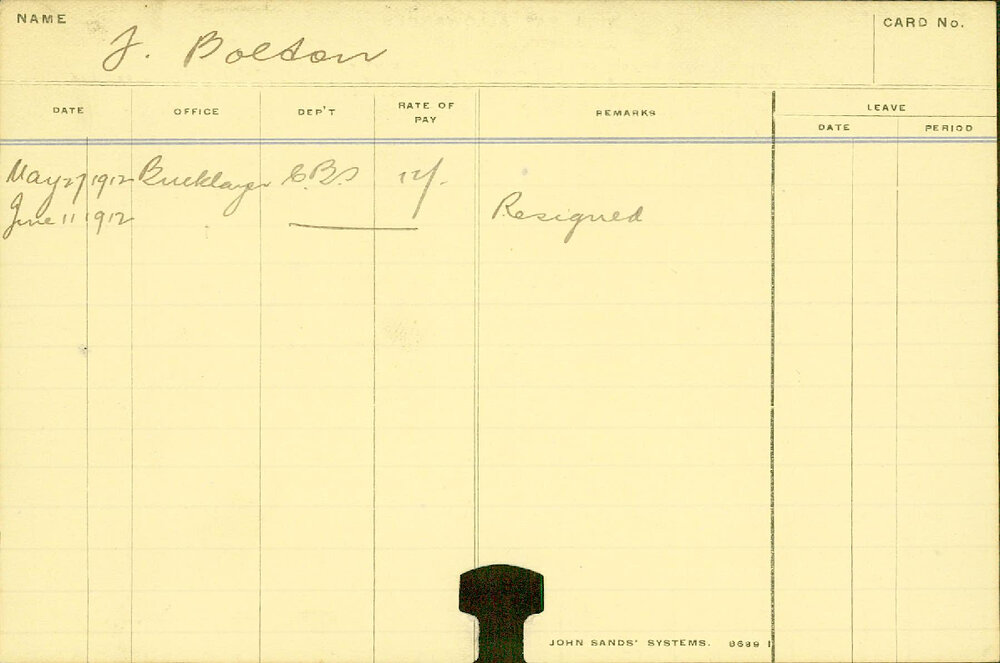 NAME
J. Bolton
CARD No.
DATE OFFICE DEP'T RATE OF PAY REMARKS LEAVE
DATE PERIOD
May 27 1912 Bricklayer C.B.S 12/-
June 11 1912 Resigned
JOHN SANDS' SYSTEMS.